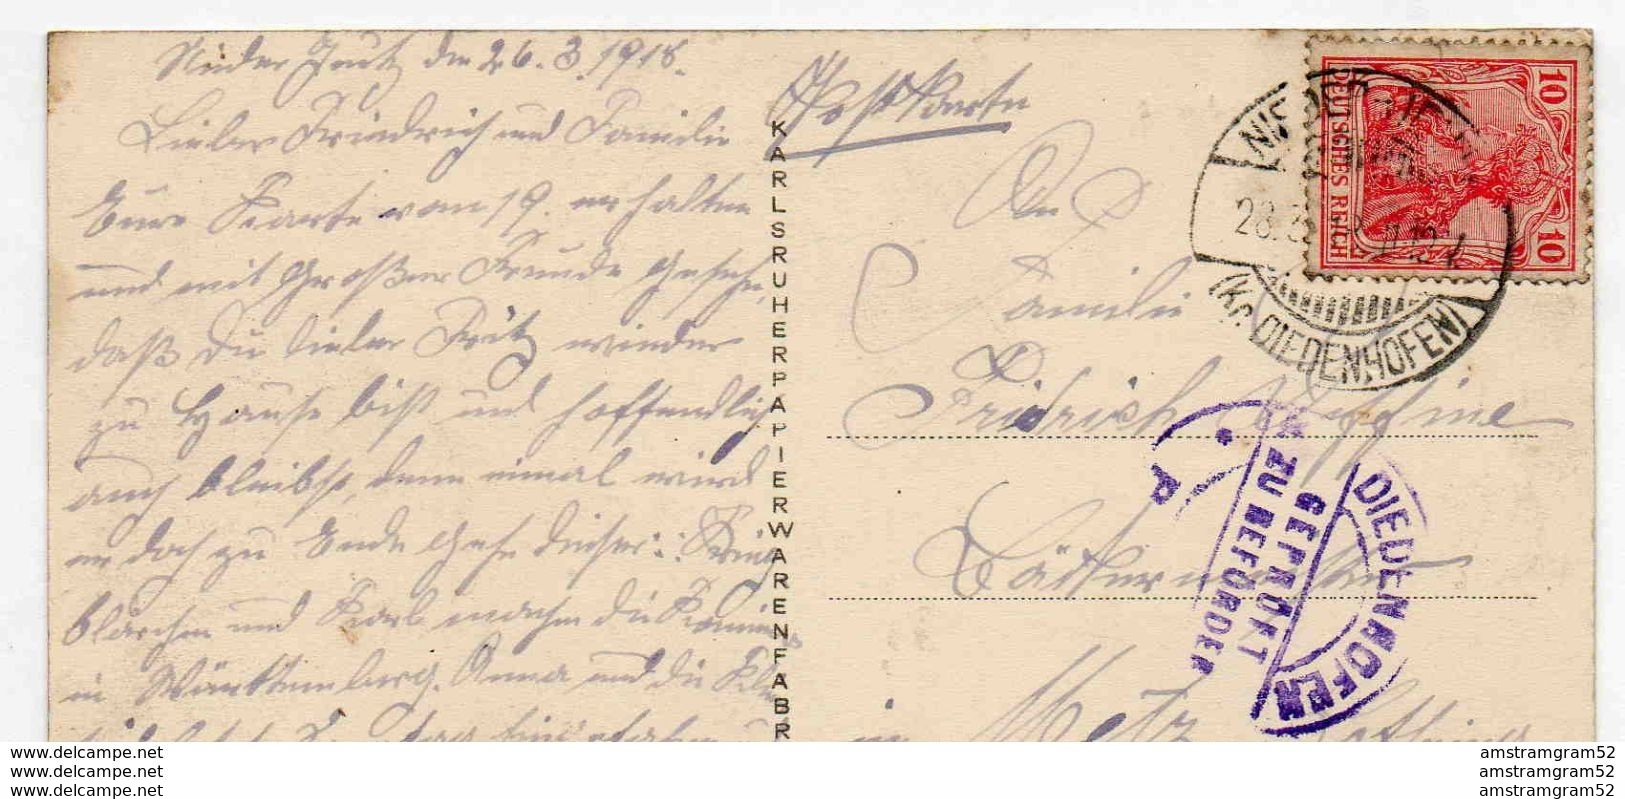 Nieder Jeutz den 26.3.1918.
Lieber Friedrich und Familie
Eure Karte vom 19. erhalten
und mit Großer Freude Gesehen,
daß Du lieber Fritz wieder
zu Hause bist und hoffendlich
auch bleibst, denn einmal wird
er doch zu Ende gehe dieser
und Karl machen die
in Württemberg. Anna und die
KARLSRUHER PAPIERWARENFABR
Postkarte
An
Familie
Fridrich
in Metz
DEUTSCHES REICH
10
10
NIEDER-JEUTZ
28.3.
(Kr. DIEDENHOFEN)
P.
GEPRÜFT
ZU BEFÖRDER
DIEDENHOFEN
www.delcampe.net
www.delcampe.net
www.delcampe.net
amstramgram52
amstramgram52
amstramgram52